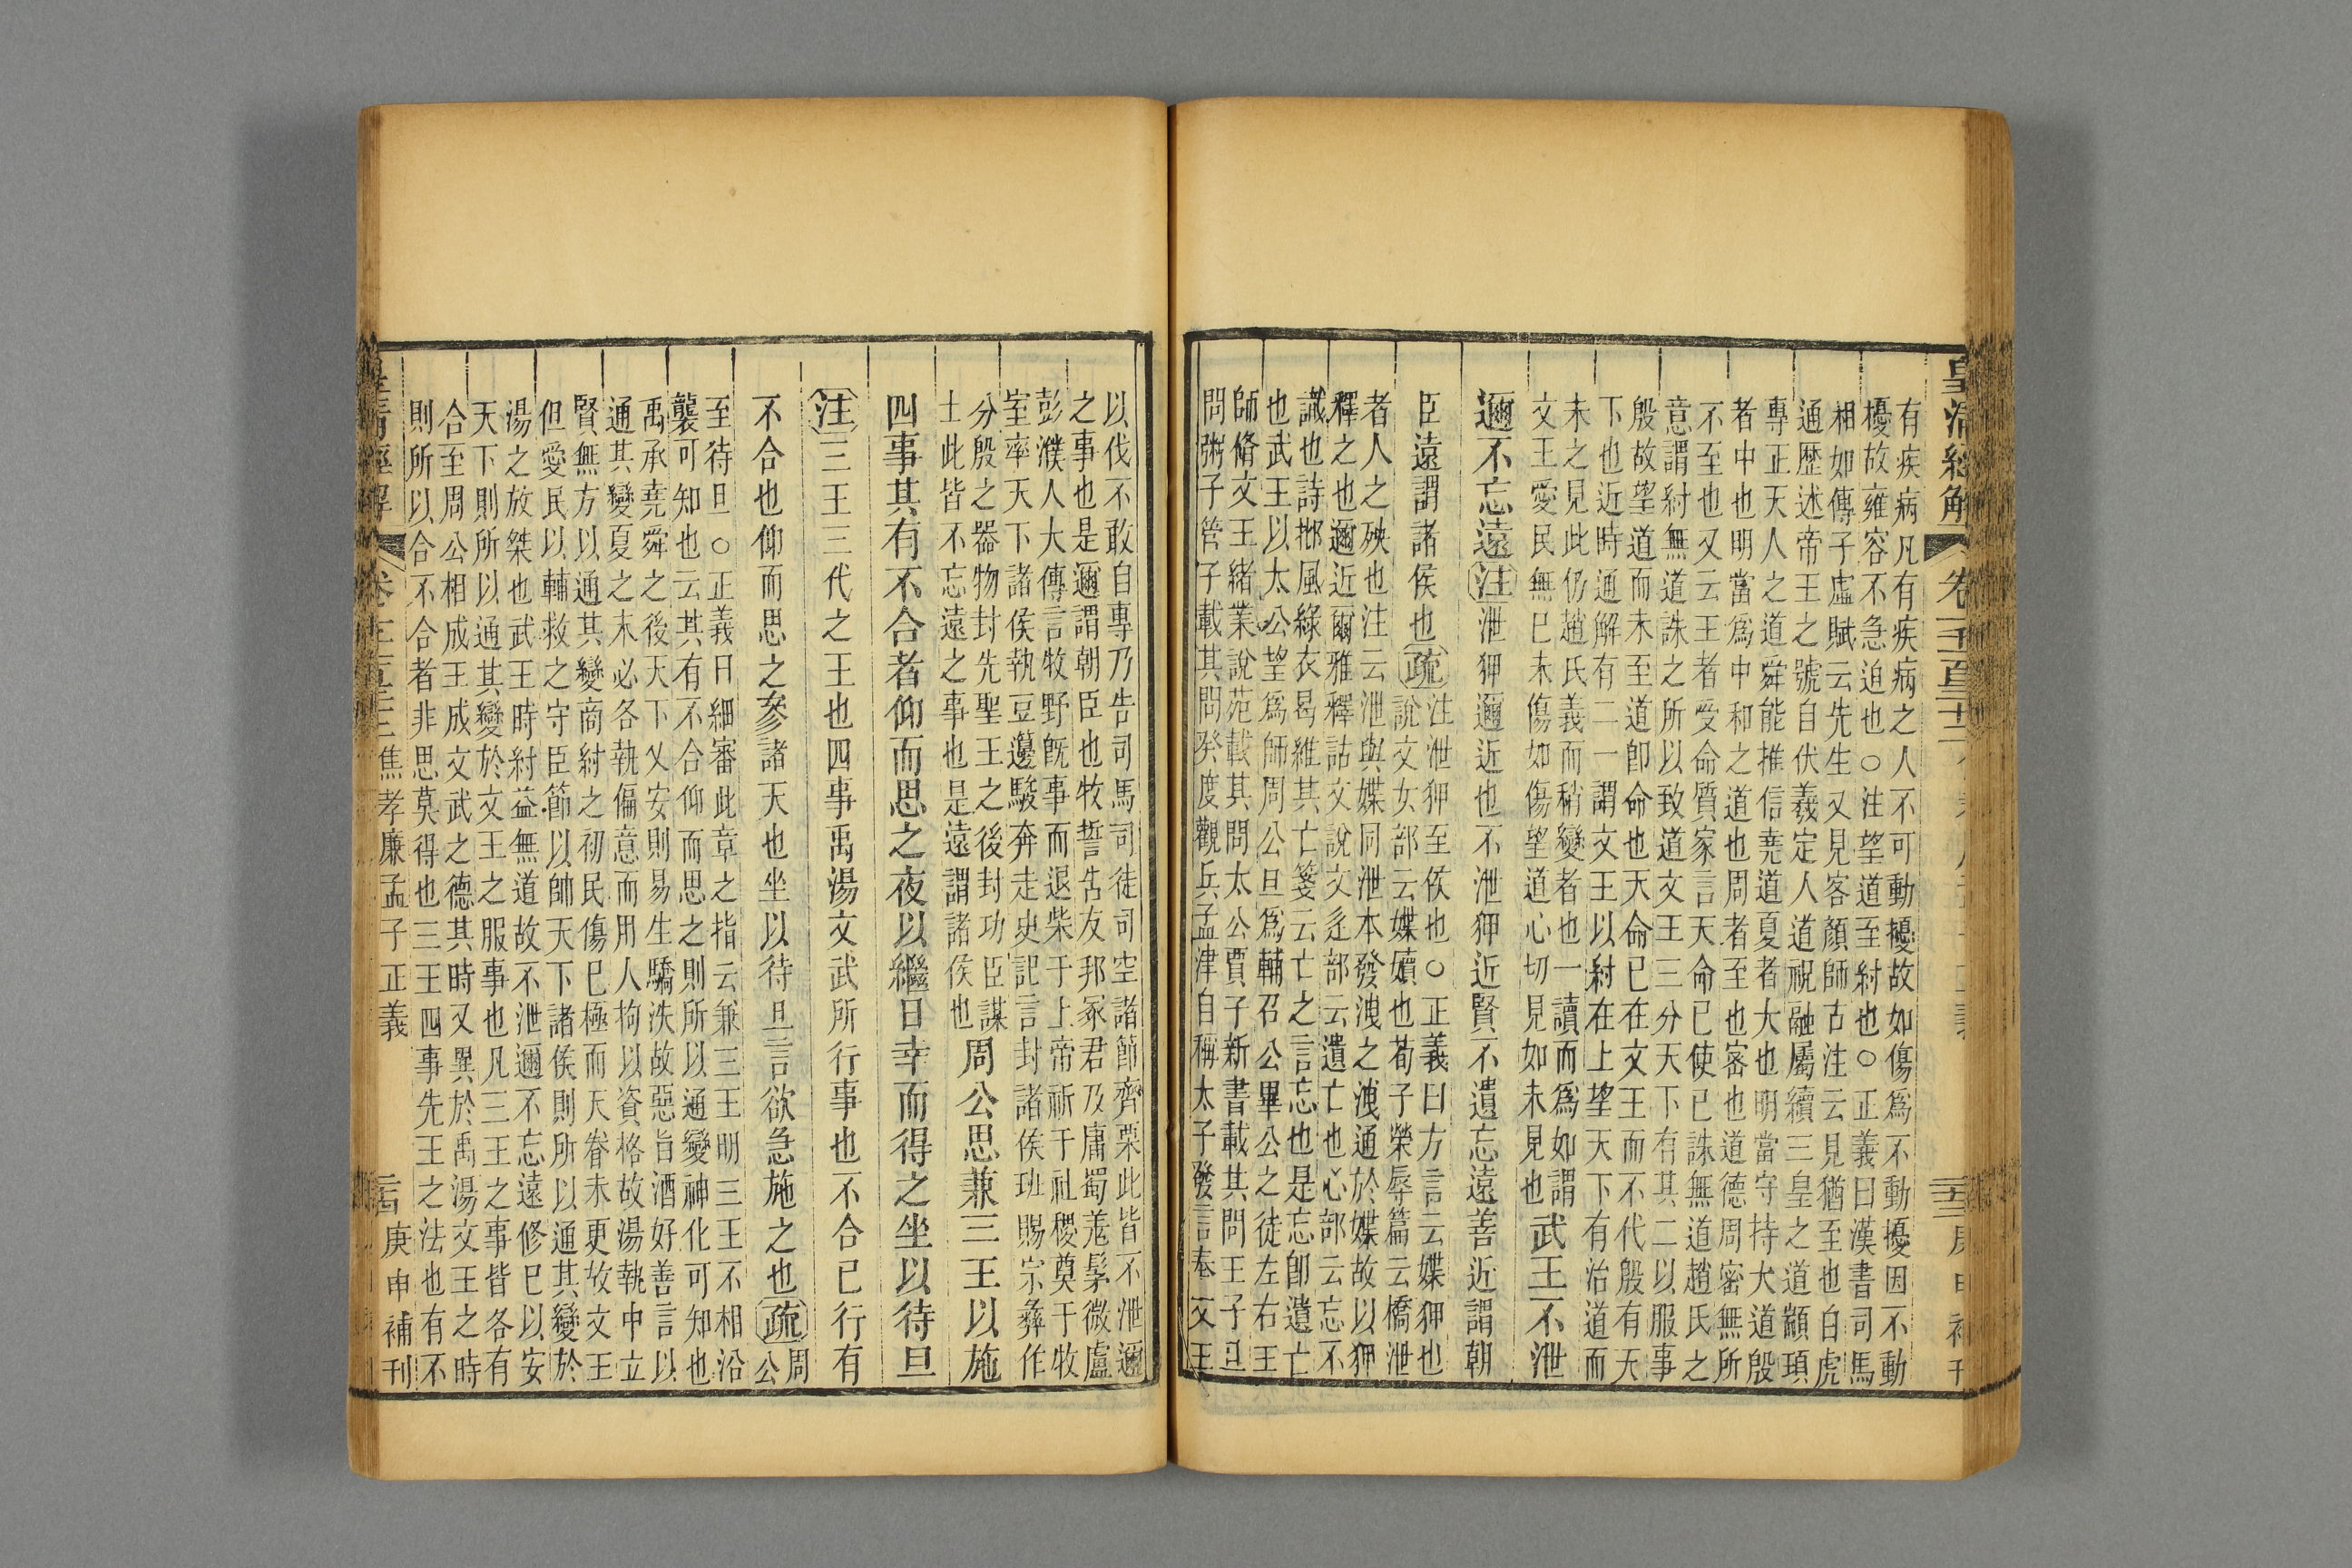 有疾病凡有疾病之人不可動擾故如傷爲不動擾因不動
擾故雍容不急迫也○注望道至紂也○正義曰漢書司馬
相如傳子虛賦云先生又見客顏師古注云見猶至也白虎
通歷述帝王之號自伏羲定人道祝融屬續三皇之道顓頊
專正天人之道舜能推信堯道夏者大也明當守持大道殷
者中也明當爲中和之道也周者至也密也道德周密無所
不至也又云王者受命質家言天命已使已誅無道趙氏之
意謂紂無道誅之所以致道文王三分天下有其二以服事
殷故望道而未至道卽命也天命已在文王而不代殷有天
下也近時通解有二一謂文王以紂在上望天下有治道而
未之見此仍趙氏義而稍變者也一讀而爲如謂
文王愛民無已未傷如傷望道心切見如未見也武王不泄
邇不忘遠注泄狎邇近也不泄狎近賢不遺忘遠善近謂朝
臣遠謂諸侯也疏注泄狎至侯也○正義曰方言云媟狎也
說文女部云媟嬻也荀子榮辱篇云橋泄
者人之殃也注云泄與媟同泄本發洩之洩通於媟故以狎
釋之也邇近爾雅釋詁文說文辵部云遺亡也心部云忘不
識也詩邶風綠衣曷維其亡箋云亡之言忘也是忘卽遺亡
也武王以太公望爲師周公旦爲輔召公畢公之徒左右王
師脩文王緒業說苑載其問太公賈子新書載其問王子旦
問粥子管子載其問癸度觀兵孟津自稱太子發言奉文王
以伐不敢自專乃告司馬司徒司空諸節齊栗此皆不泄邇
之事也是邇謂朝臣也牧誓告友邦冢君及庸蜀羌髳微盧
彭濮人大傳言牧野既事而退柴于上帝祈于社稷奠于牧
室率天下諸侯執豆籩駿奔走史記言封諸侯班賜宗彝作
分殷之器物封先聖王之後封功臣謀
士此皆不忘遠之事也是遠謂諸侯也周公思兼三王以施
四事其有不合者仰而思之夜以繼日幸而得之坐以待旦
注三王三代之王也四事禹湯文武所行事也不合已行有
不合也仰而思之參諸天也坐以待旦言欲急施之也疏周公
至待旦○正義曰細審此章之指云兼三王明三王不相沿
襲可知也云其有不合仰而思之則所以通變神化可知也
禹承堯舜之後天下又安則易生驕泆故惡旨酒好善言以
通其變夏之末必各執偏意而用人拘以資格故湯執中立
賢無方以通其變商紂之初民傷已極而天眷未更故文王
但愛民以輔救之守臣節以帥天下諸侯則所以通其變於
湯之放桀也武王時紂益無道故不泄邇不忘遠修已以安
天下則所以通其變於文王之服事也凡三王之事皆各有
合至周公相成王成文武之德其時又異於禹湯文王之時
則所以合不合者非思莫得也三王四事先王之法也有不
焦孝廉孟子正義
庚申補刊